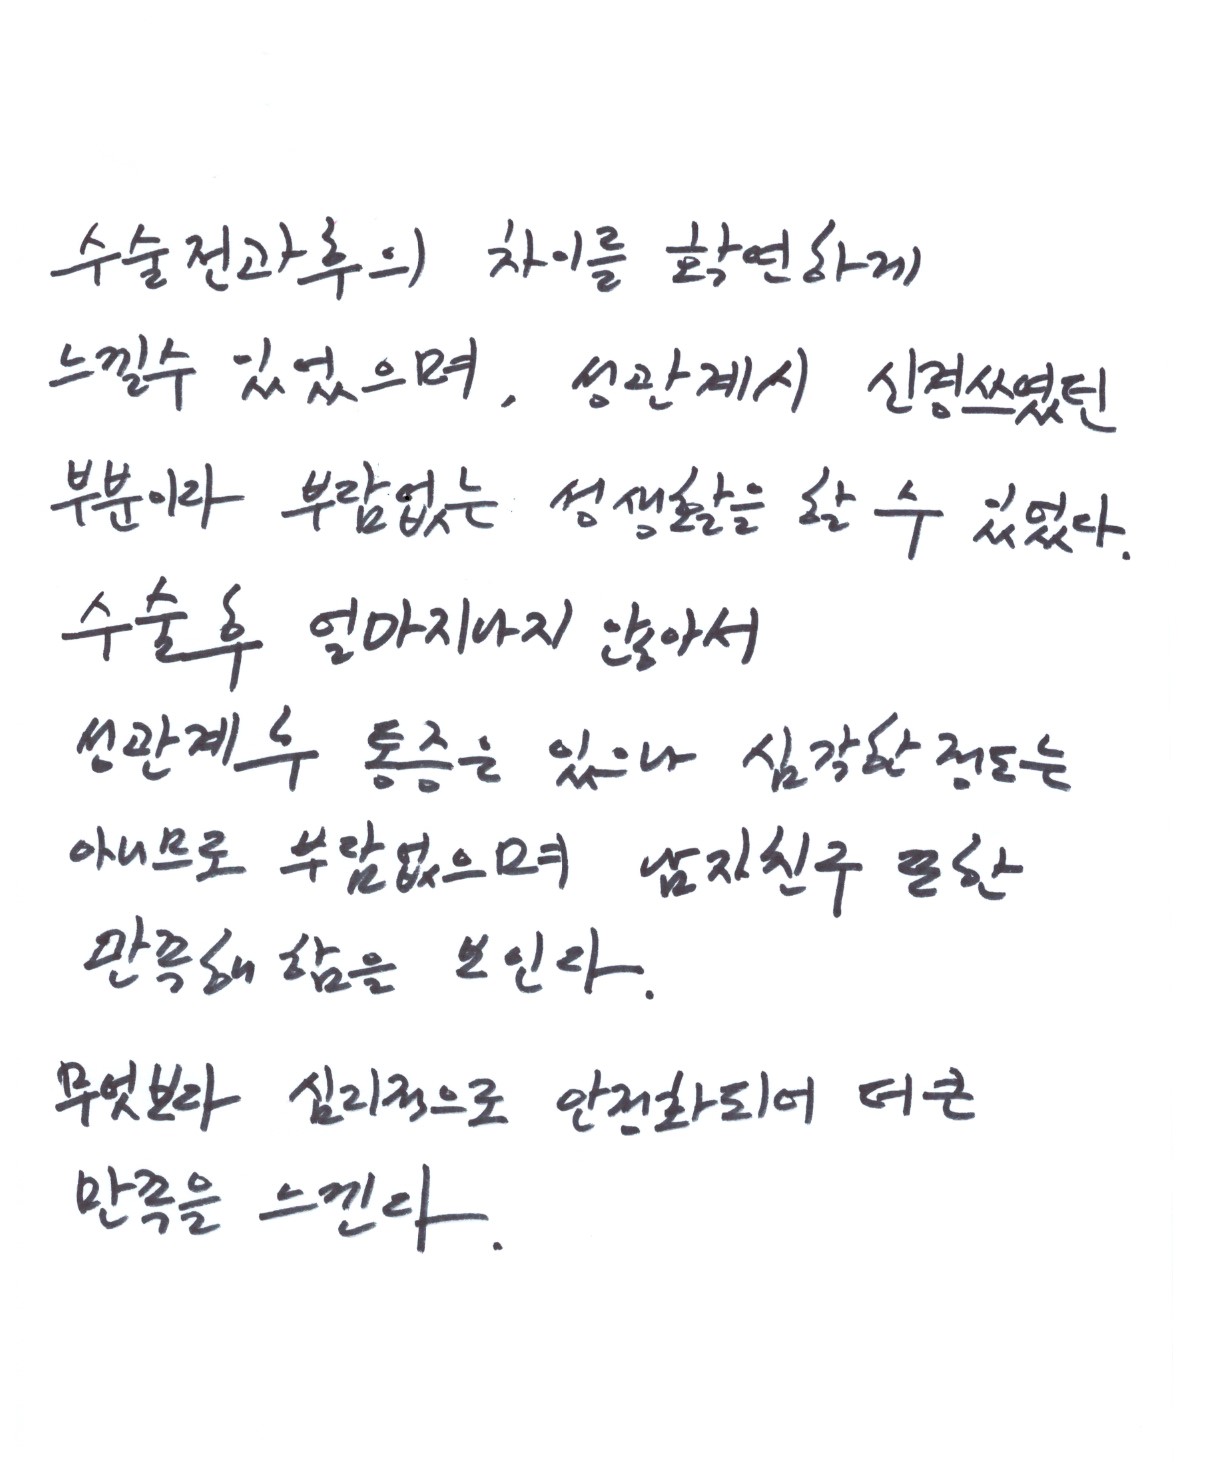 수술전과후의 차이를 확연하게
느낄수 있었으며, 성관계시 신경쓰였던
부분이라 부담없는 성생활을 할 수 있었다.
수술후 얼마지나지 않아서
성관계후 통증은 있으나 심각한 정도는
아니므로 부담없으며 남자친구 또한
만족해 함을 보인다.
무엇보다 심리적으로 안정화되어 더큰
만족을 느낀다.